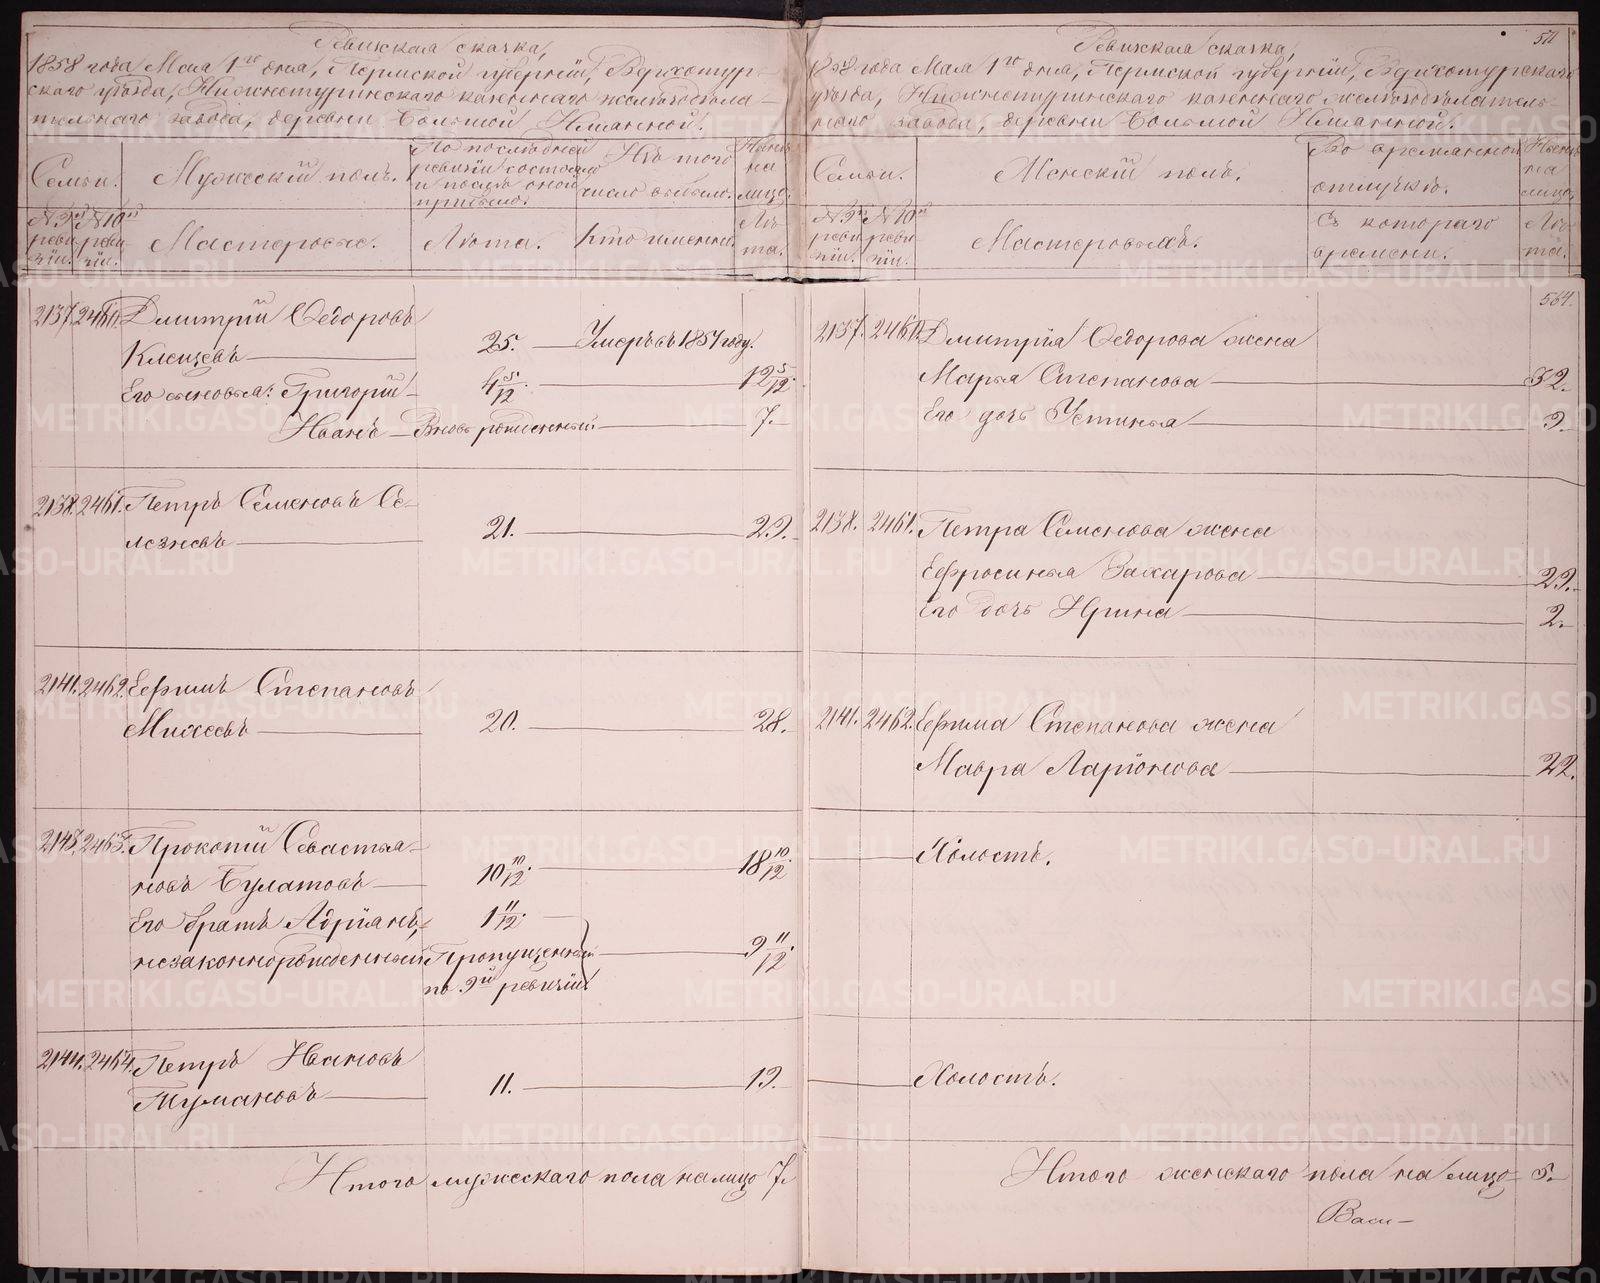 Ревижская сказка,
1858 года Мая 1го дня, Пермской губернии, Верхотур-
скаго уѣзда, Нижнетуринскаго казеннаго желѣзодѣла-
тельнаго завода, деревни Большой Именной.
Семьи.
Мужескій полъ.
По послѣдней
ревизіи состояло
и послѣ оной
прибыло.
Изъ того
числа выбыло.
Нынѣ
на
лицо.
№ 9й
реви
зіи.
№ 10й
реви
зіи.
Мастеровые.
Лѣта.
Кто именно.
Лѣ-
та.
2137. 2460. Дмитрій Ѳедоровъ
Клещевъ 25. Умеръ въ 1857 году.
Его сыновья: Григорій 4 5/12. 12 5/12.
Иванъ Вновь рожденный. 7.
2138. 2461. Петръ Семеновъ Се-
лезневъ 21. 29.
2141. 2462. Ефимъ Степановъ
Михеевъ 20. 28.
2143. 2463. Прокопій Севастья-
новъ Булатовъ 10 10/12. 18 10/12.
Его братъ Адріанъ, 1 11/12.
незаконнорожденный Пропущенный 9 11/12.
по 9й ревизіи.
2144. 2464. Петръ Ивановъ
Тумановъ 11. 19.
Итого мужескаго пола на лицо 7.
Ревижская сказка,
1858 года Мая 1го дня, Пермской губерніи, Верхотурскаго
уѣзда, Нижнетуринскаго казеннаго желѣзодѣлатель-
наго завода, деревни Большой Именной.
Семьи.
Женскій полъ.
Во временной
отлучкѣ.
Нынѣ
на
лицо.
№ 9й
реви
зіи.
№ 10й
реви
зіи.
Мастеровыхъ.
Съ котораго
времени.
Лѣ-
та.
564.
2137. 2460. Дмитрія Ѳедорова жена
Марья Степанова 32.
Его дочь Устинья 9.
2138. 2461. Петра Семенова жена
Ефросинья Захарова 29.
Его дочь Ирина 2.
2141. 2462. Ефима Степанова жена
Мавра Ларіонова 22.
Холостъ.
Холостъ.
Итого женскаго пола на лицо 5.
Васи-
METRIKI.GASO-URAL.RU